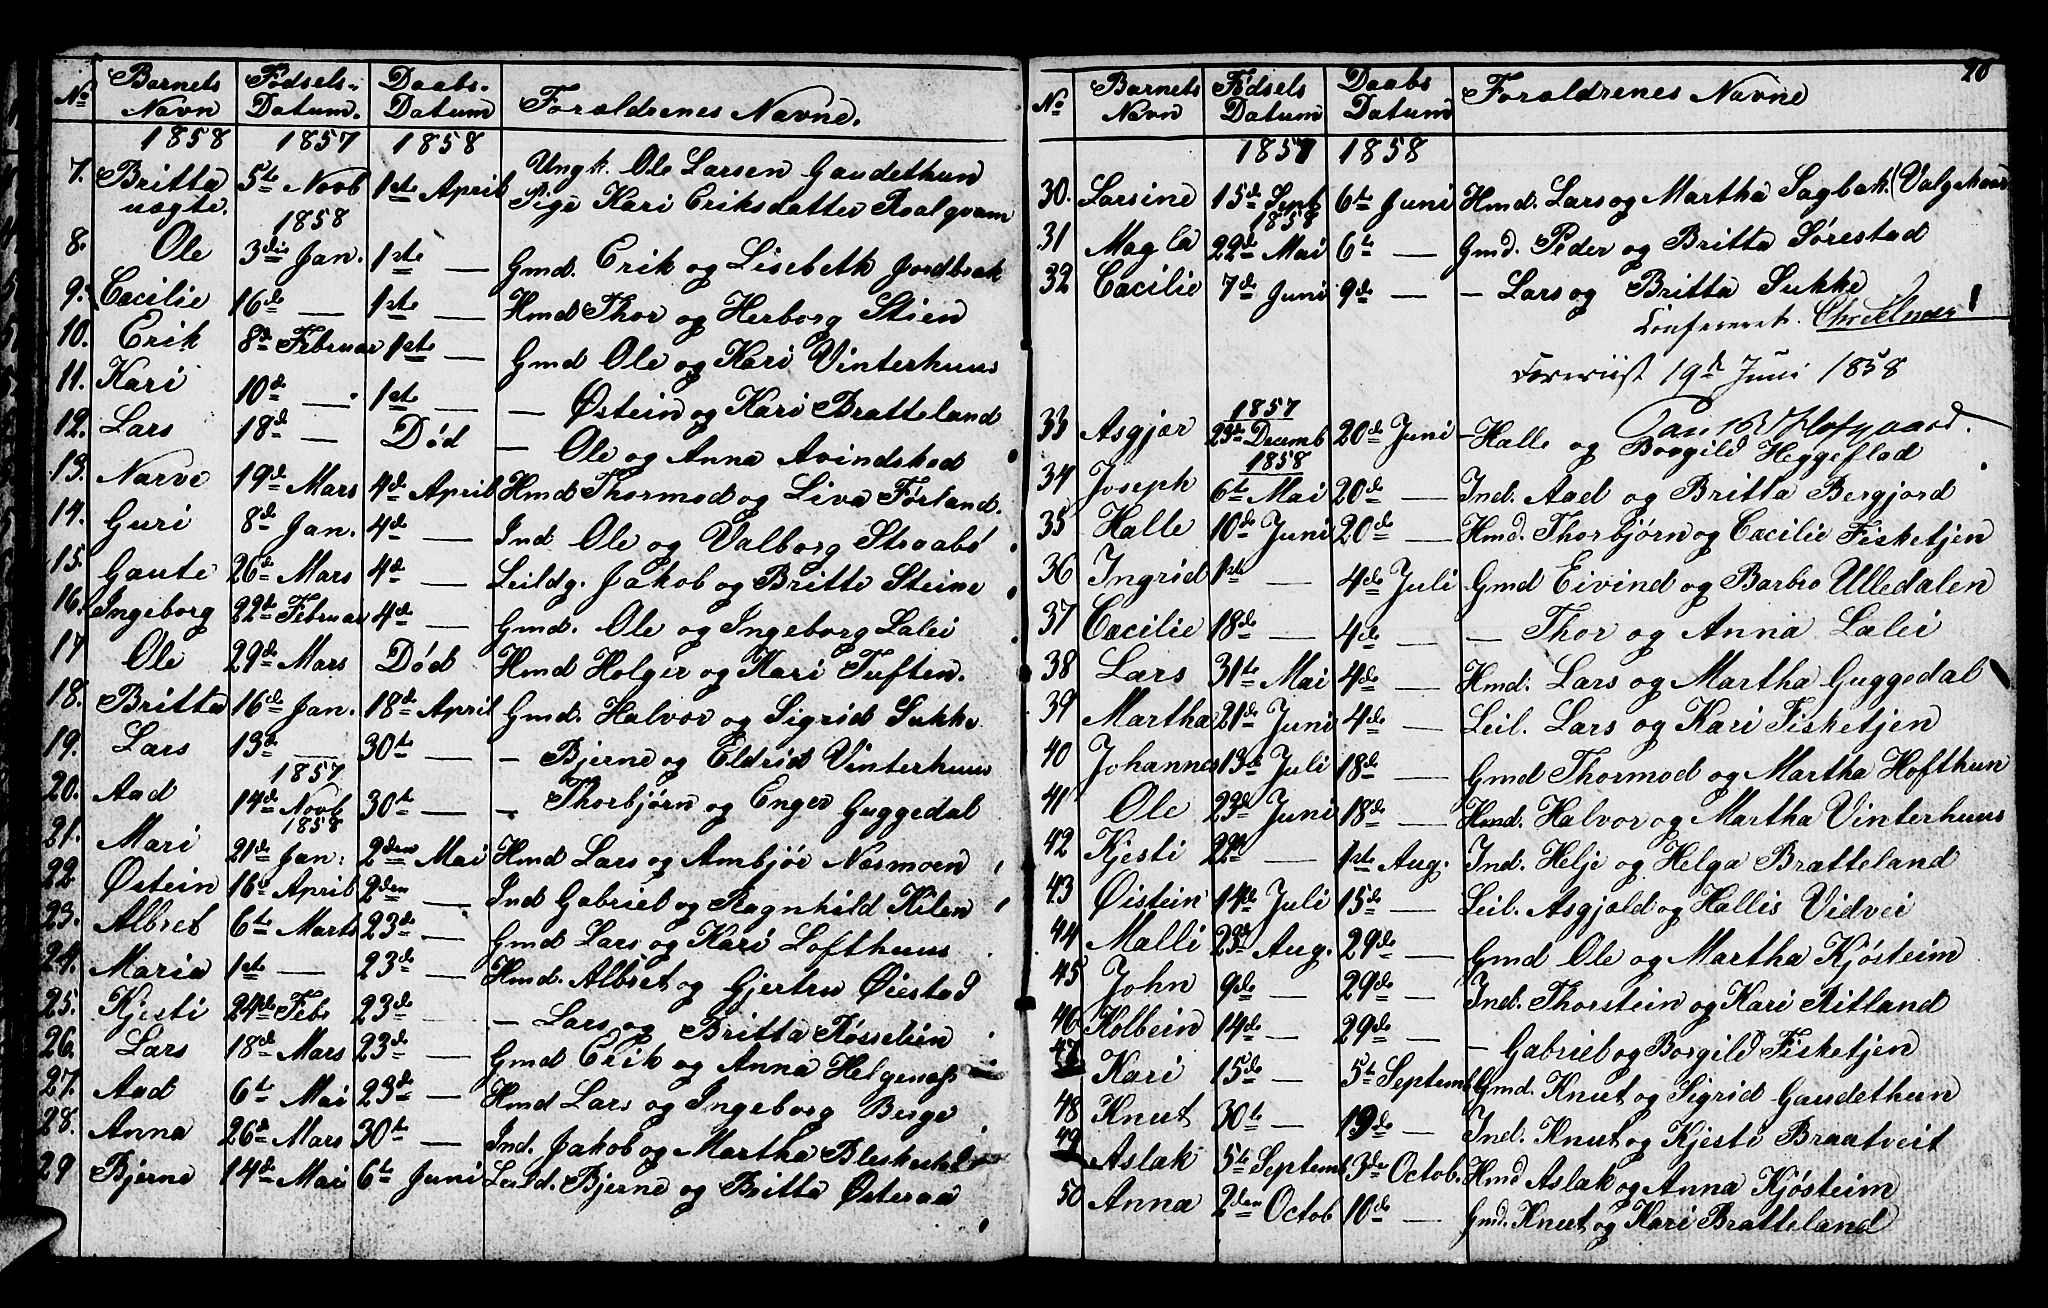 No | Barnets Navn | Fødsels- Datum. | Daabs- Datum | Foraldrenes Navne.
1858 | 1857 | 1858
7. Britta uægte. | 5te Novb | 1ste April | Ungk. Ole Larsen Gaudethun
Pige Kari Eriksdatter Roalqvam
1858
8. Ole | 3die Jan. | 1ste — | Gmd. Erik og Lisebeth Jordbræk
9. Cæcilie | 16de — | 1ste — | Hmd Thor og Herborg Stien
10. Erik | 8de Februar | 1ste — | Gmd Ole og Kari Vinterhuus
11. Kari | 10de — | 1ste — | — Østein og Kari Bratteland
12. Lars | 18de — | Død | — Ole og Anna Avindsked
13. Narve | 19de Mars | 4de April | Hmd Thormod og Liva Førland.
14. Guri | 8de Jan. | 4de — | Ind Ole og Valborg Straabø
15. Gaute | 26te Mars | 4de — | Leildg. Jakob og Britte Steine
16. Ingeborg | 22de Februar | 4de — | Gmd. Ole og Ingeborg Lalei
17 Ole | 29de Mars | Død | Hmd Holger og Kari Tuften.
18. Britta | 16de Jan. | 18de April | Gmd. Halvor og Sigrid Sukke
19. Lars | 13de — | 30te — | — Bjerne og Eldrid Vinterhuus
1857
20. Aad | 14de Novb | 30te — | — Thorbjørn og Enger Guggedal
1858
21. Mari | 21de Jan. | 2den Mai | Hmd Lars og Ambjør Næsmoen
22 Østein | 16de April | 2den — | Ind Gabriel og Ragnhild Kilen
23. Albret | 6te Marts | 23de — | Gmd Lars og Kari Lofthuus
24. Maria | 1ste — | 23de — | Hmd. Albret og Gjertru Øiestad
25. Kjesti | 24de Feb. | 23de — | — Lars og Britta Røsselien
26. Lars | 18de Mars | 23de — | Gmd Erik og Anna Helgenæss
27. Aad | 6te Mai | 23de — | Hmd Lars og Ingeborg Berge
28. Anna | 26de Mars | 30te — | Ind. Jakob og Martha
29 Bjerne | 14de Mai | 6te Juni | Leild. Bjerne og Britta Østeraa
20
No | Barnets Navn | Fødsels Datum | Daabs Datum | Foraldrenes Navne
1857 | 1858
30. Larsine | 15de Sept | 6te Juni | Hmd. Lars og Martha Sagbak.
1858
31 Magla | 22de Mai | 6te — | Gmd. Peder og Britta Sørestad
32 Cæcilie | 7de Juni | 9de — | — Lars og Britta Sukke
Confereret.
Foreviist 19de Juni 1858
1857
33 Asgjær | 23de Decemb | 20de Juni | — Halle og Borgild Heggeflad
1858
34 Joseph | 6te Mai | 20de — | Ind. Aad og Britta Bergjord
35 Halle | 10de Juni | 20de — | Hmd. Thorbjørn og Cæcilie Fisketjen
36 Ingrid | 1ste — | 4de Juli | Gmd Eivind og Barbro Ulledalen
37 Cæcilie | 18de — | 4de — | — Thor og Anna Lalei
38 Lars | 31te Mai | 4de — | Hmd. Lars og Martha Guggedal
39 Martha | 21de Juni | 4de — | Leil. Lars og Kari Fisketjen
40 Johannes | 13de Juli | 18de — | Gmd Thormod og Martha Hofthun
41 Ole | 23de Juni | 18de — | Hmd. Halvor og Martha Vinterhuus
42 Kjesti | 22de — | 1ste Aug. | Ind. Helje og Helga Bratteland
43 Øistein | 14de Juli | 15de — | Leil. Asgjøld og Hallis Vidvei
44 Malli | 23de Aug. | 29de — | Gmd Ole og Martha Kjøsteim
45 John | 9de — | 29de — | Ind. Thorstein og Kari Ritland
46 Kolbein | 14de — | 29de — | — Gabriel og Borgild Fisketjen
47 Kari | 15de — | 5te Septemb | Gmd. Knut og Sigrid Gaudethun
48 Knut | 30te — | 19de — | Ind. Knut og Kjesti Braatveit
49 Aslak | 5te Septemb | 3die Octob. | Hmd Aslak og Anna Kjøsteim
50 Anna | 2den Octob | 10de — | Gmd. Knut og Kari Bratteland